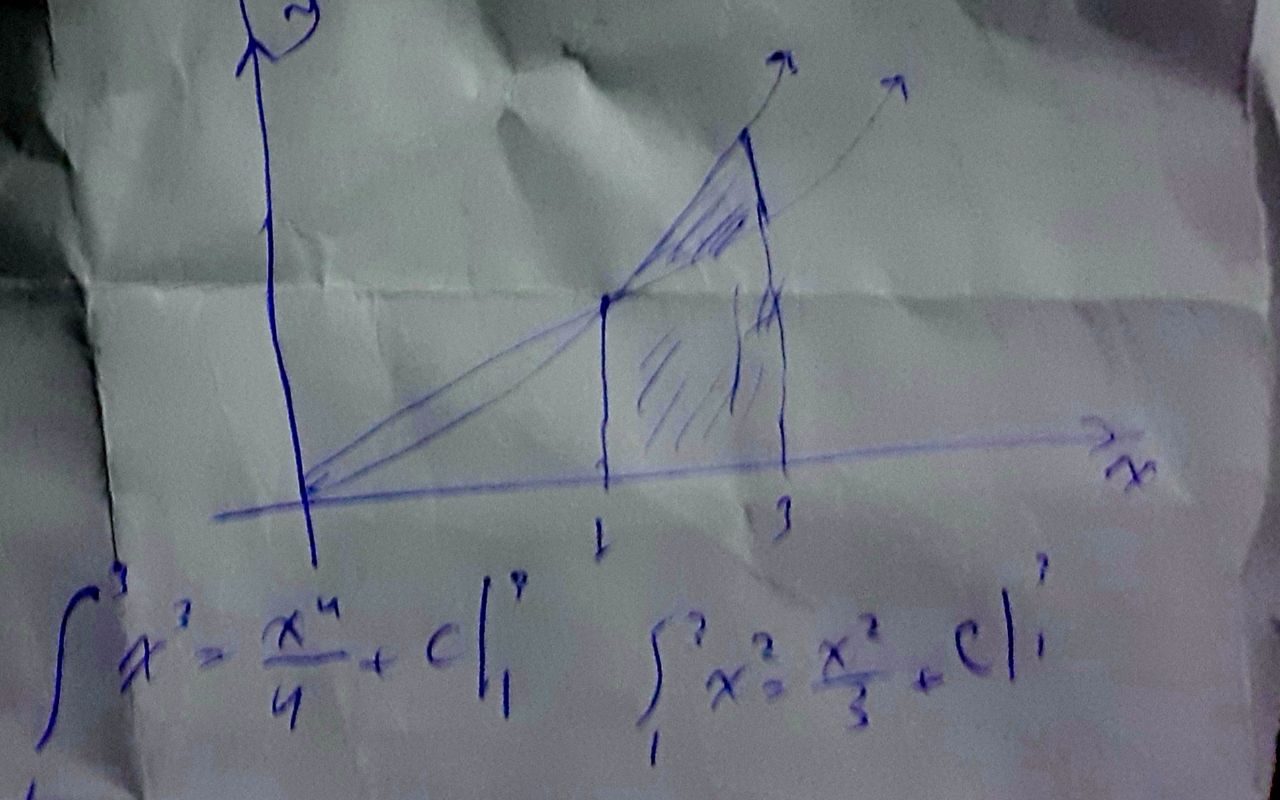 y
x
1 3
∫₁³ x³ = x⁴/4 + C |₁³ ∫₁³ x² = x³/3 + C |₁³